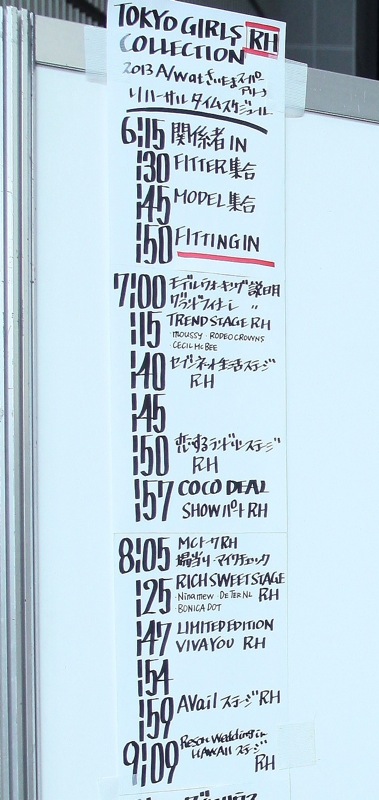 TOKYO GIRLS RH
COLLECTION
2013 A/W at さいたまスーパー
アリーナ
リハーサル タイムスケジュール
6:15 関係者 IN
:30 FITTER 集合
:45 MODEL 集合
:50 FITTING IN
7:00 モデルウォーキング説明
グランドフィナーレ 〃
:15 TREND STAGE RH
moussy・RODEO CROWNS
・CECIL McBEE
:40 セブンネット生活ステージ
RH
:45
:50 恋する ステージ
RH
:57 COCO DEAL
SHOWパート RH
8:05 MCトークRH
場当り・マイクチェック
:25 RICH SWEET STAGE
・Ninamew・DE TER NL RH
BONICA DOT
:47 LIMITED EDITION
VIVAYOU RH
:54
:59 AVail ステージRH
9:09 Resort Wedding in
HAWAII ステージ
RH